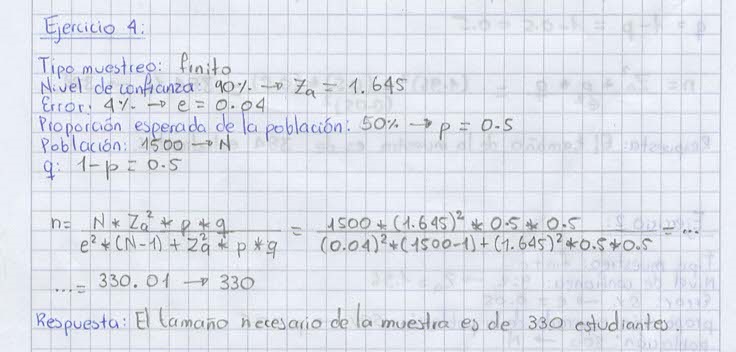 Ejercicio 4:
Tipo muestreo: finito
Nivel de confianza: 90% → Za = 1.645
Error: 4% → e = 0.04
Proporción esperada de la población: 50% → p = 0.5
Población: 1500 → N
q: 1-p = 0.5
n= N * Za² * p * q / e² * (N-1) + Za² * p * q = 1500 * (1.645)² * 0.5 * 0.5 / (0.04)² * (1500-1) + (1.645)² * 0.5 * 0.5 = ...
... = 330.01 → 330
Respuesta: El tamaño necesario de la muestra es de 330 estudiantes.